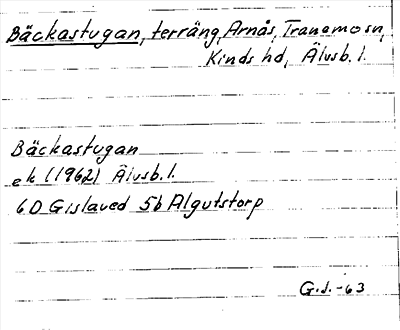 Bäckastugan, terräng, Arnås, Tranemo sn,
Kinds hd, Älvsb. l.
Bäckastugan
ek (1962) Älvsb. l.
6D Gislaved 5b Algutstorp
G.J.-63